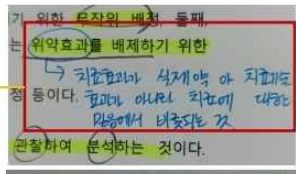 기 위한 무작위 배정, 둘째,
는 위약효과를 배제하기 위한
→ 치료효과가 실제 약 아 치료기술
정 등이다. 효과가 아니라 치료에 대한
믿음에서 비롯되는 것
관찰하여 분석하는 것이다.